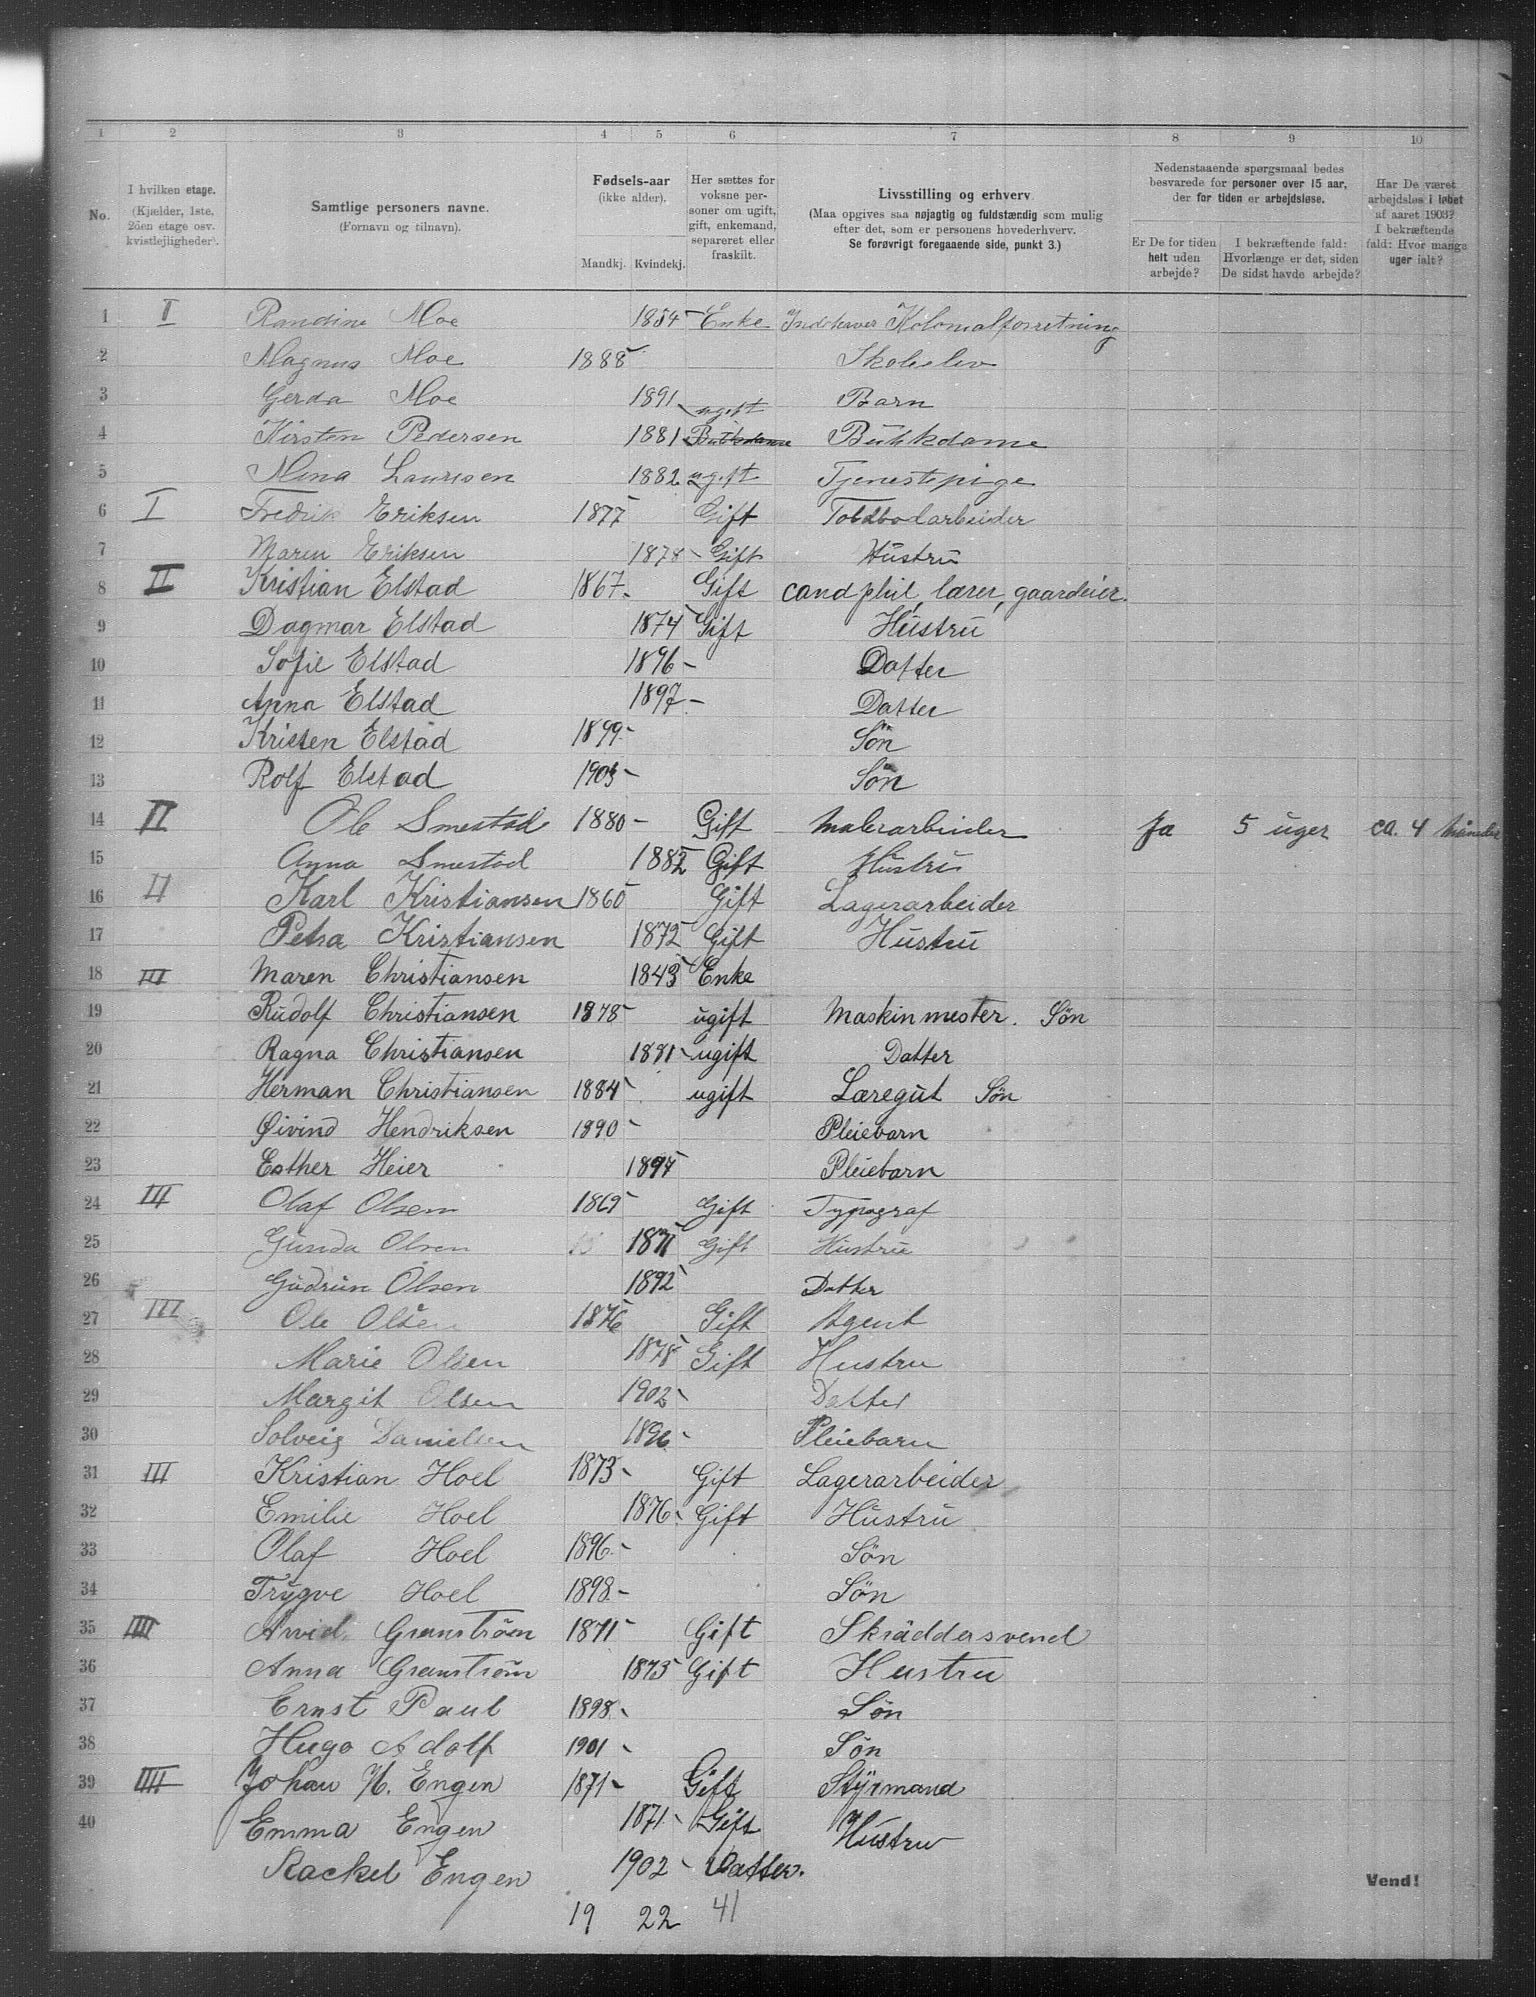 1 2 3 4 5 6 7 8 9 10
No.
I hvilken etage.
(Kjælder, 1ste, 2den etage osv. kvistlejligheder).
Samtlige personers navne.
(Fornavn og tilnavn).
Fødsels-aar
(ikke alder).
Mandkj. Kvindekj.
Her sættes for voksne personer om ugift, gift, enkemand, separeret eller fraskilt.
Livsstilling og erhverv.
(Maa opgives saa nøjagtig og fuldstændig som mulig efter det, som er personens hovederhverv.
Se forøvrigt foregaaende side, punkt 3.)
Nedenstaaende spørgsmaal bedes besvarede for personer over 15 aar, der for tiden er arbejdsløse.
Er De for tiden helt uden arbejde?
I bekræftende fald: Hvorlænge er det, siden De sidst havde arbejde?
Har De været arbejdsløs i løbet af aaret 1903? I bekræftende fald: Hvor mange uger ialt?
1 II Randine Moe 1854 Enke Indehaver Kolonialforretning
2 Magnus Moe 1888 Skoleelev
3 Gerda Moe 1891 Barn
4 Kirsten Pedersen 1881 ugift Butikdame Butikdame
5 Mina Lauresen 1882 ugift Tjenestepige
6 I Fredrik Eriksen 1877 Gift Toldbodarbeider
7 Maren Eriksen 1878 Gift Hustru
8 II Kristian Elstad 1867 Gift cand phil, lærer, gaardeier.
9 Dagmar Elstad 1874 Gift Hustru
10 Sofie Elstad 1896 Datter
11 Anna Elstad 1897 Datter
12 Kristen Elstad 1899 Søn
13 Rolf Elstad 1903 Søn
14 II Ole Smestad 1880 Gift Malerarbeider Ja 5 uger ca. 4 Måneder
15 Anna Smestad 1882 Gift Hustru
16 II Karl Kristiansen 1860 Gift Lagerarbeider
17 Petra Kristiansen 1872 Gift Hustru
18 III Maren Christiansen 1843 Enke
19 Rudolf Christiansen 1878 ugift Maskinmester. Søn
20 Ragna Christiansen 1881 ugift Datter
21 Herman Christiansen 1884 ugift Læregut Søn
22 Øivind Hendriksen 1890 Pleiebarn
23 Esther Heier 1894 Pleiebarn
24 III Olaf Olsen 1869 Gift Typograf
25 Gunda Olsen 1871 Gift Hustru
26 Gudrun Olsen 1892 Datter
27 III Ole Olsen 1876 Gift Agent
28 Marie Olsen 1878 Gift Hustru
29 Margit Olsen 1902 Datter
30 Solveig Danielsen 1896 Pleiebarn
31 III Kristian Hoel 1873 Gift Lagerarbeider
32 Emilie Hoel 1876 Gift Hustru
33 Olaf Hoel 1896 Søn
34 Trygve Hoel 1898 Søn
35 IIII Arvid Granström 1871 Gift Skräddersvend
36 Anna Granström 1873 Gift Hustru
37 Ernst Paul 1898 Søn
38 Hugo Adolf 1901 Søn
39 IIII Johan H. Engen 1871 Gift Styrmand
40 Emma Engen 1871 Gift Hustru
Rackel Engen 1902 Datter.
Vend!
19 22 41